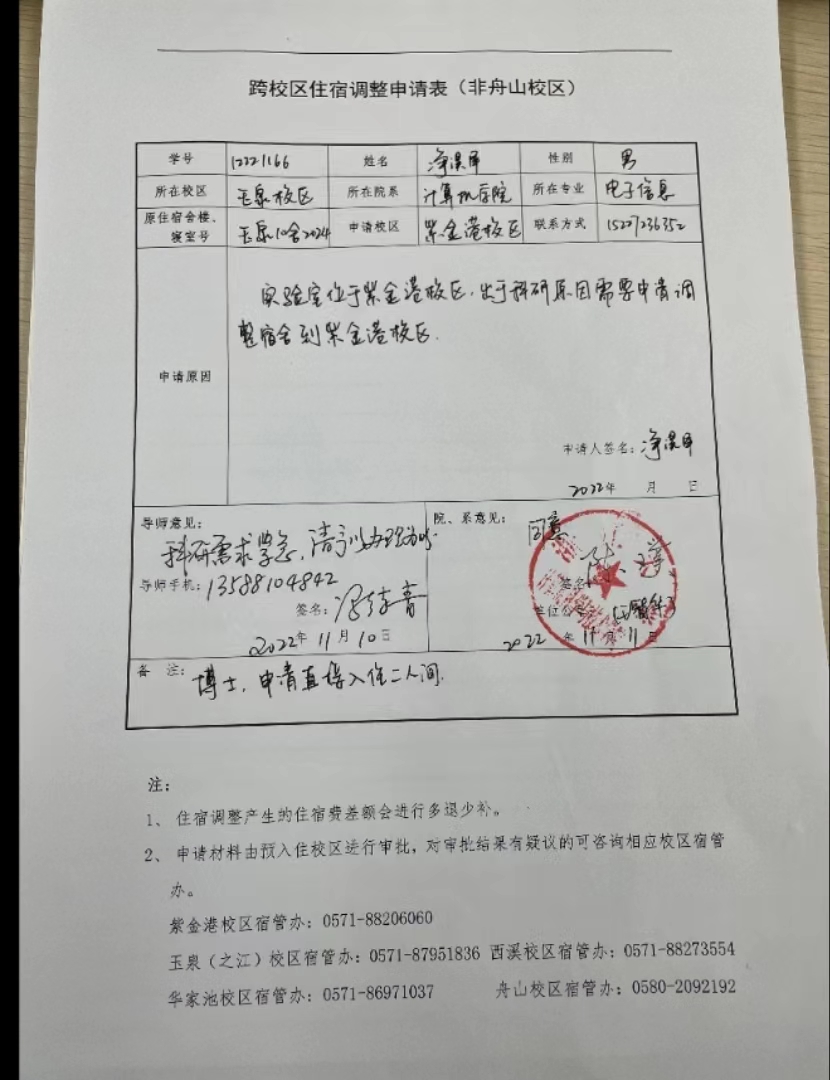 跨校区住宿调整申请表（非舟山校区）
学号 12221166 姓名 性别 男
所在校区 玉泉校区 所在院系 计算机学院 所在专业 电子信息
原住宿舍楼、寝室号 玉泉10舍2024 申请校区 紫金港校区 联系方式 15207236352
申请原因
实验室位于紫金港校区，出于科研原因需要申请调
整宿舍到紫金港校区.
申请人签名：
2022年 月 日
导师意见： 院、系意见： 同意
科研需求 请予以办理为盼.
导师手机：13588104842 签名：
签名： 单位公章
2022年11月10日 2022年11月11日
备 注： 博士，申请直接入住二人间.
注：
1、住宿调整产生的住宿费差额会进行多退少补。
2、申请材料由预入住校区进行审批，对审批结果有疑议的可咨询相应校区宿管
办。
紫金港校区宿管办：0571-88206060
玉泉（之江）校区宿管办：0571-87951836 西溪校区宿管办：0571-88273554
华家池校区宿管办：0571-86971037 舟山校区宿管办：0580-2092192